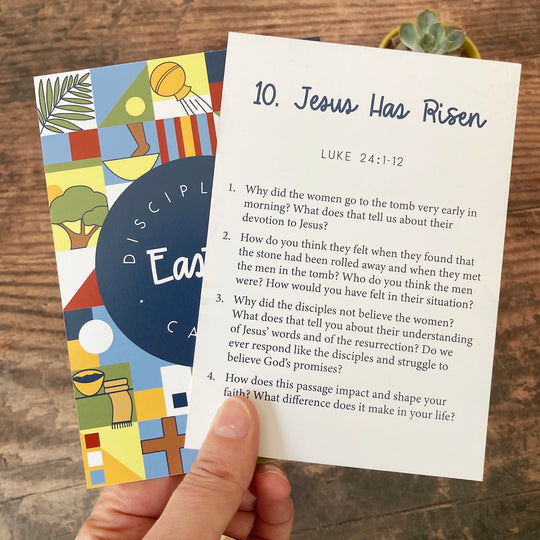 10. Jesus Has Risen
LUKE 24:1-12
1. Why did the women go to the tomb very early in
morning? What does that tell us about their
devotion to Jesus?
2. How do you think they felt when they found that
the stone had been rolled away and when they met
the men in the tomb? Who do you think the men
were? How would you have felt in their situation?
3. Why did the disciples not believe the women?
What does that tell you about their understanding
of Jesus' words and of the resurrection? Do we
ever respond like the disciples and struggle to
believe God's promises?
4. How does this passage impact and shape your
faith? What difference does it make in your life?
DISCIPL
East
CA